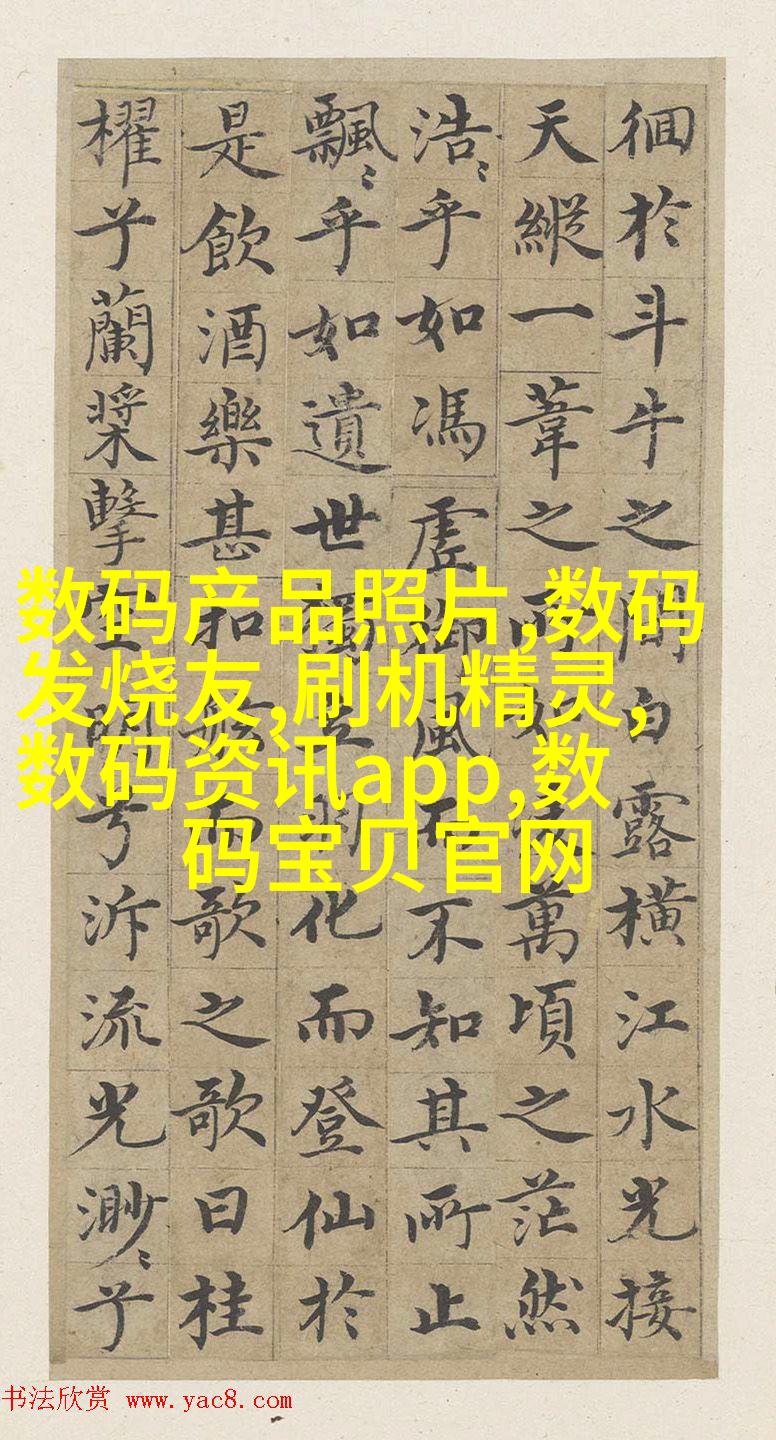 徊於斗牛之間白露橫江水光接
天縱一葦之所如凌萬頃之茫然
浩〻乎如馮虛御風而不知其所止
飄〻乎如遺世獨立羽化而登仙於
是飲酒樂甚扣舷而歌之歌曰桂
櫂兮蘭槳擊空明兮泝流光渺〻兮
数码产品照片,数码
发烧友,刷机精灵,
数码资讯app,数
码宝贝官网
书法欣赏 www.yac8.com